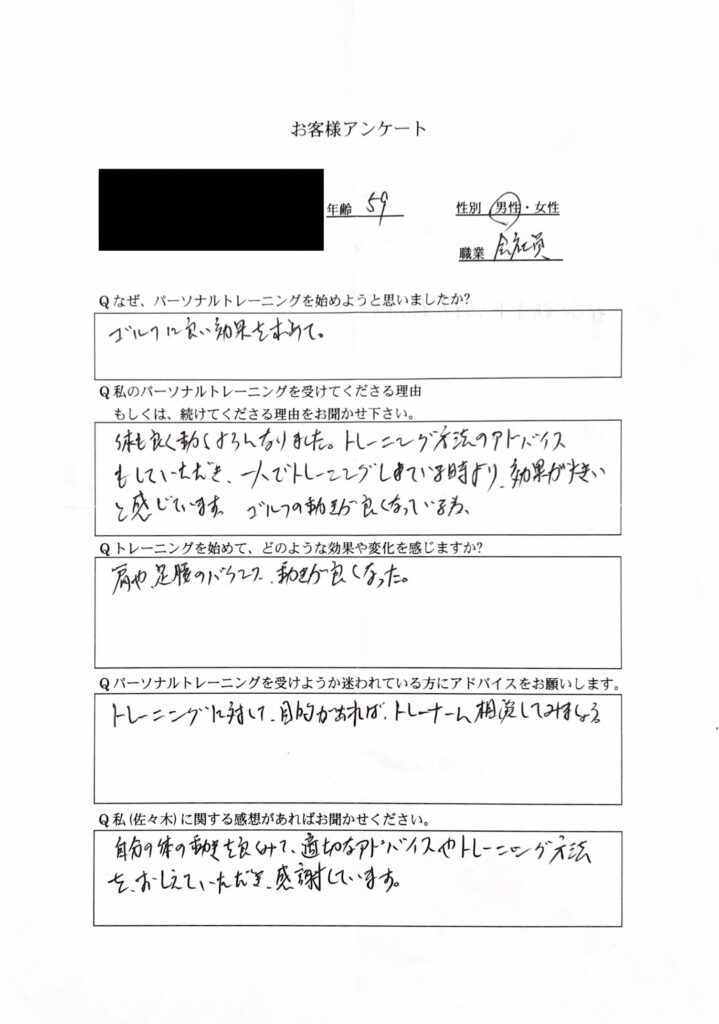 お客様アンケート
年齢 59
性別 男性・女性
職業 会社員
Q なぜ、パーソナルトレーニングを始めようと思いましたか?
ゴルフに良い効果を求めて。
Q 私のパーソナルトレーニングを受けてくださる理由
もしくは、続けてくださる理由をお聞かせ下さい。
体も良く動くようになりました。トレーニング方法のアドバイス
もしていただき、一人でトレーニングしている時より、効果が大きい
と感じています。 ゴルフの動きが良くなっている為、
Q トレーニングを始めて、どのような効果や変化を感じますか?
肩や、足腰のバランス、動きが良くなった。
Q パーソナルトレーニングを受けようか迷われている方にアドバイスをお願いします。
トレーニングに対して、目的があれば、トレーナーへ相談してみましょう
Q 私 (佐々木) に関する感想があればお聞かせください。
自分の体の動きを良くみて、適切なアドバイスやトレーニング方法
を、おしえていただき、感謝しています。